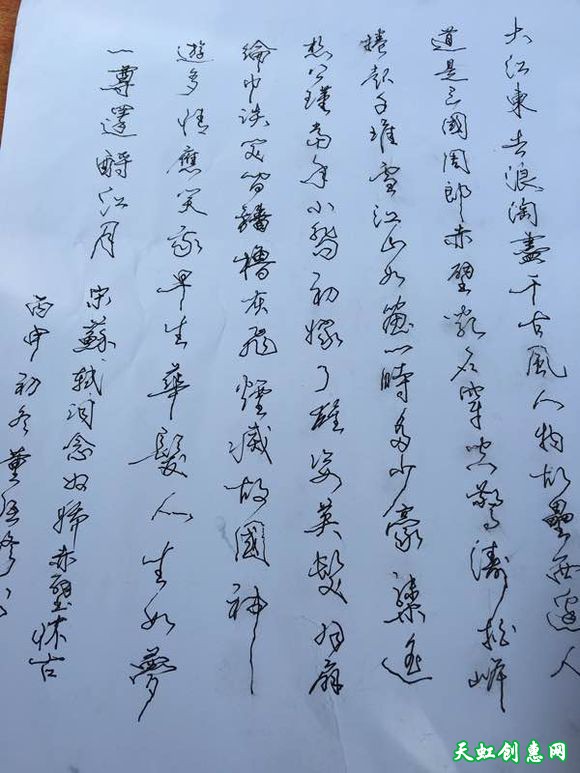 大江東去浪淘盡千古風人物故壘西邊人
道是三國周郎赤壁亂石穿空驚濤拍岸
捲起千堆雪江山如畫一時多少豪傑遙
想公瑾當年小喬初嫁了雄姿英發羽扇
綸巾談笑間檣櫓灰飛煙滅故國神
遊多情應笑我早生華髮人生如夢
一尊還酹江月 宋蘇軾詞念奴嬌赤壁怀古
丙申初冬董
天虹创惠网